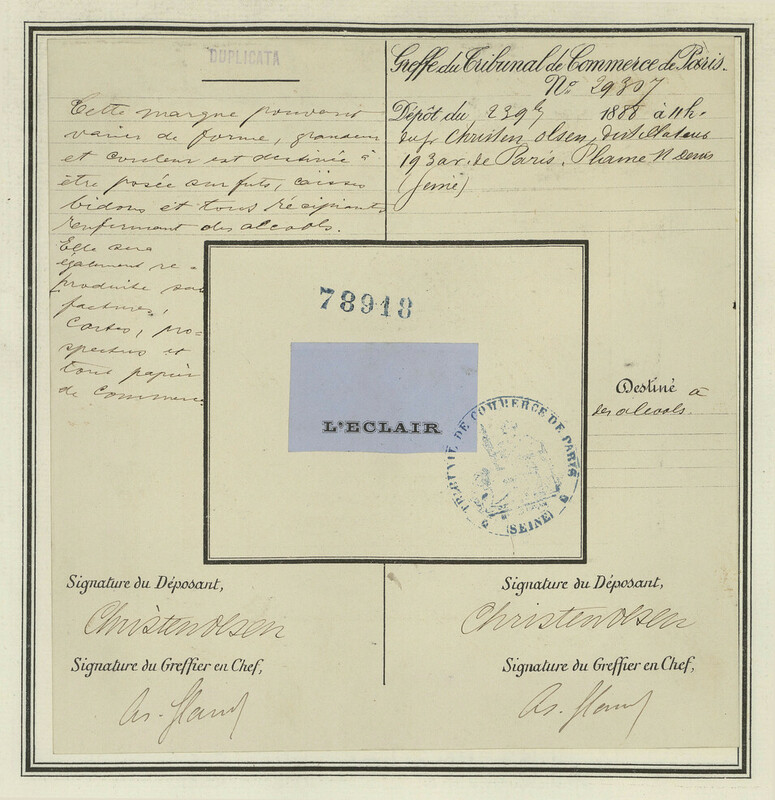 DUPLICATA
Cette marque pouvant
varier de forme, grandeur
et couleur est destinée à
être posée sur futs, caisses
bidons et tous récipients
renfermant des alcools.
Elle sera
également re-
produite sur
factures,
Cartes, pro-
spectus et
tout papier
de commerce.
Greffe du Tribunal de Commerce de Paris.
No 29307
Dépôt du 23 9bre 1888 à 11h.
Christen Olsen, distillateur
193 av. de Paris, Plaine St Denis
(Seine)
78918
L'ECLAIR
TRIBUNAL DE COMMERCE DE PARIS
(SEINE)
Destiné à
des alcools.
Signature du Déposant,
Christen Olsen
Signature du Greffier en Chef,
Signature du Déposant,
Christen Olsen
Signature du Greffier en Chef,